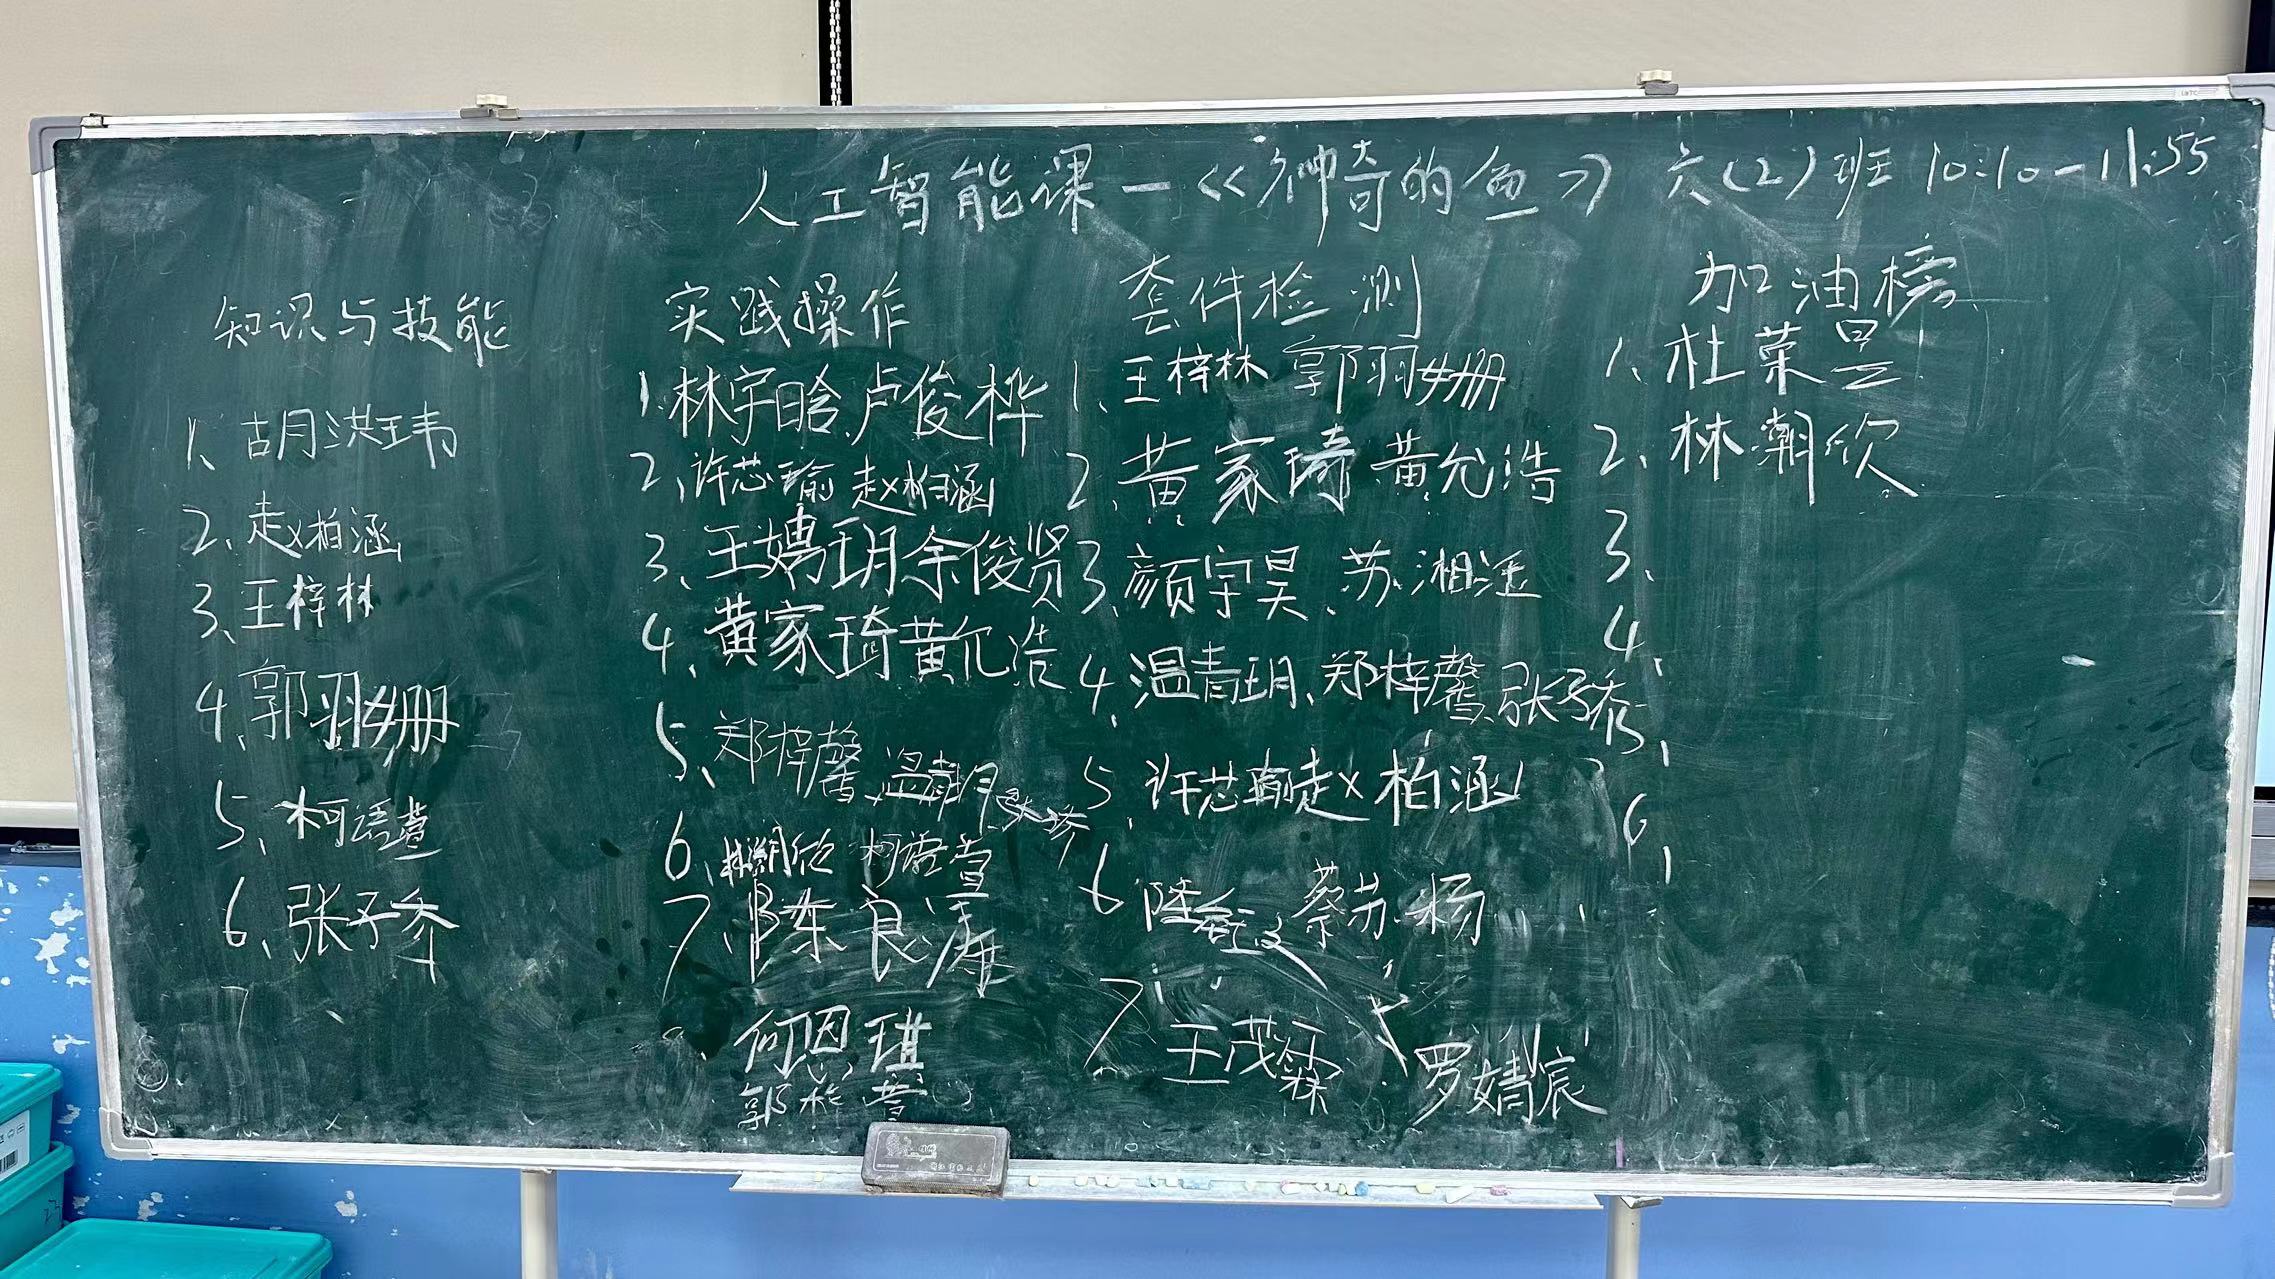 人工智能课一《神奇的鱼》 六(2)班 10:10-11:55
知识与技能
1、胡洪玮
2、赵柏涵
3、王梓林
4、郭羽姗
5、柯语萱
6、张子乔
7
实践操作
1、林宇晗、卢俊桦
2、许芯瑜 赵柏涵
3、王娉玥 余俊贤
4、黄家琦 黄允浩
5、郑梓馨、温青玥
6、林潮欣 柯语萱
7、陈良
何恩琪
郭
套件检测
1、王梓林 郭羽姗
2、黄家琦 黄允浩
3、颜宇昊、苏湘
4、温青玥、郑梓馨、张子乔
5、许芯瑜赵柏涵
6 陆 蔡苏杨
7、王茂霖、罗婧宸
加油榜
1、杜菜昱
2、林潮欣
3、
4、
5、
6、